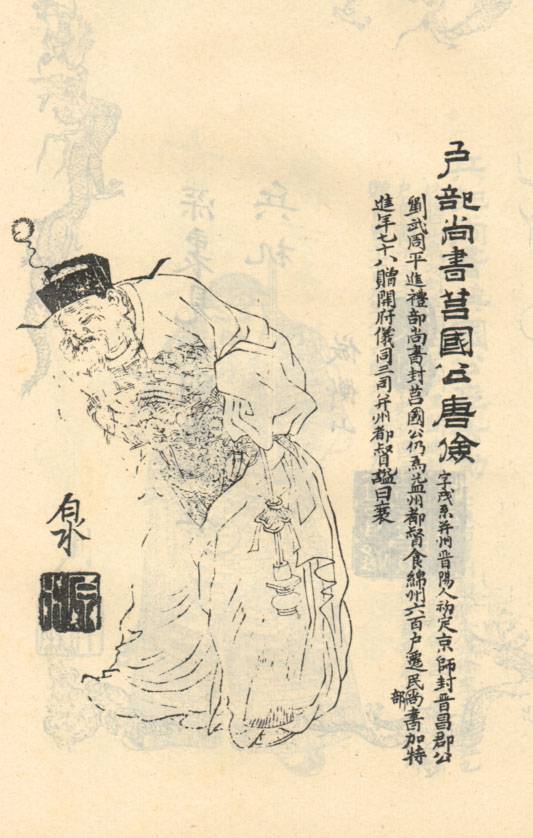 户部尚書莒國公唐儉
字茂系并州晉陽人初定京師封晉昌郡公
劉武周平進禮部尚書封莒國公仍為益州都督食綿州六百户遷民部尚書加特
進年七十八贈開府儀同三司并州都督謚曰襄
伯水